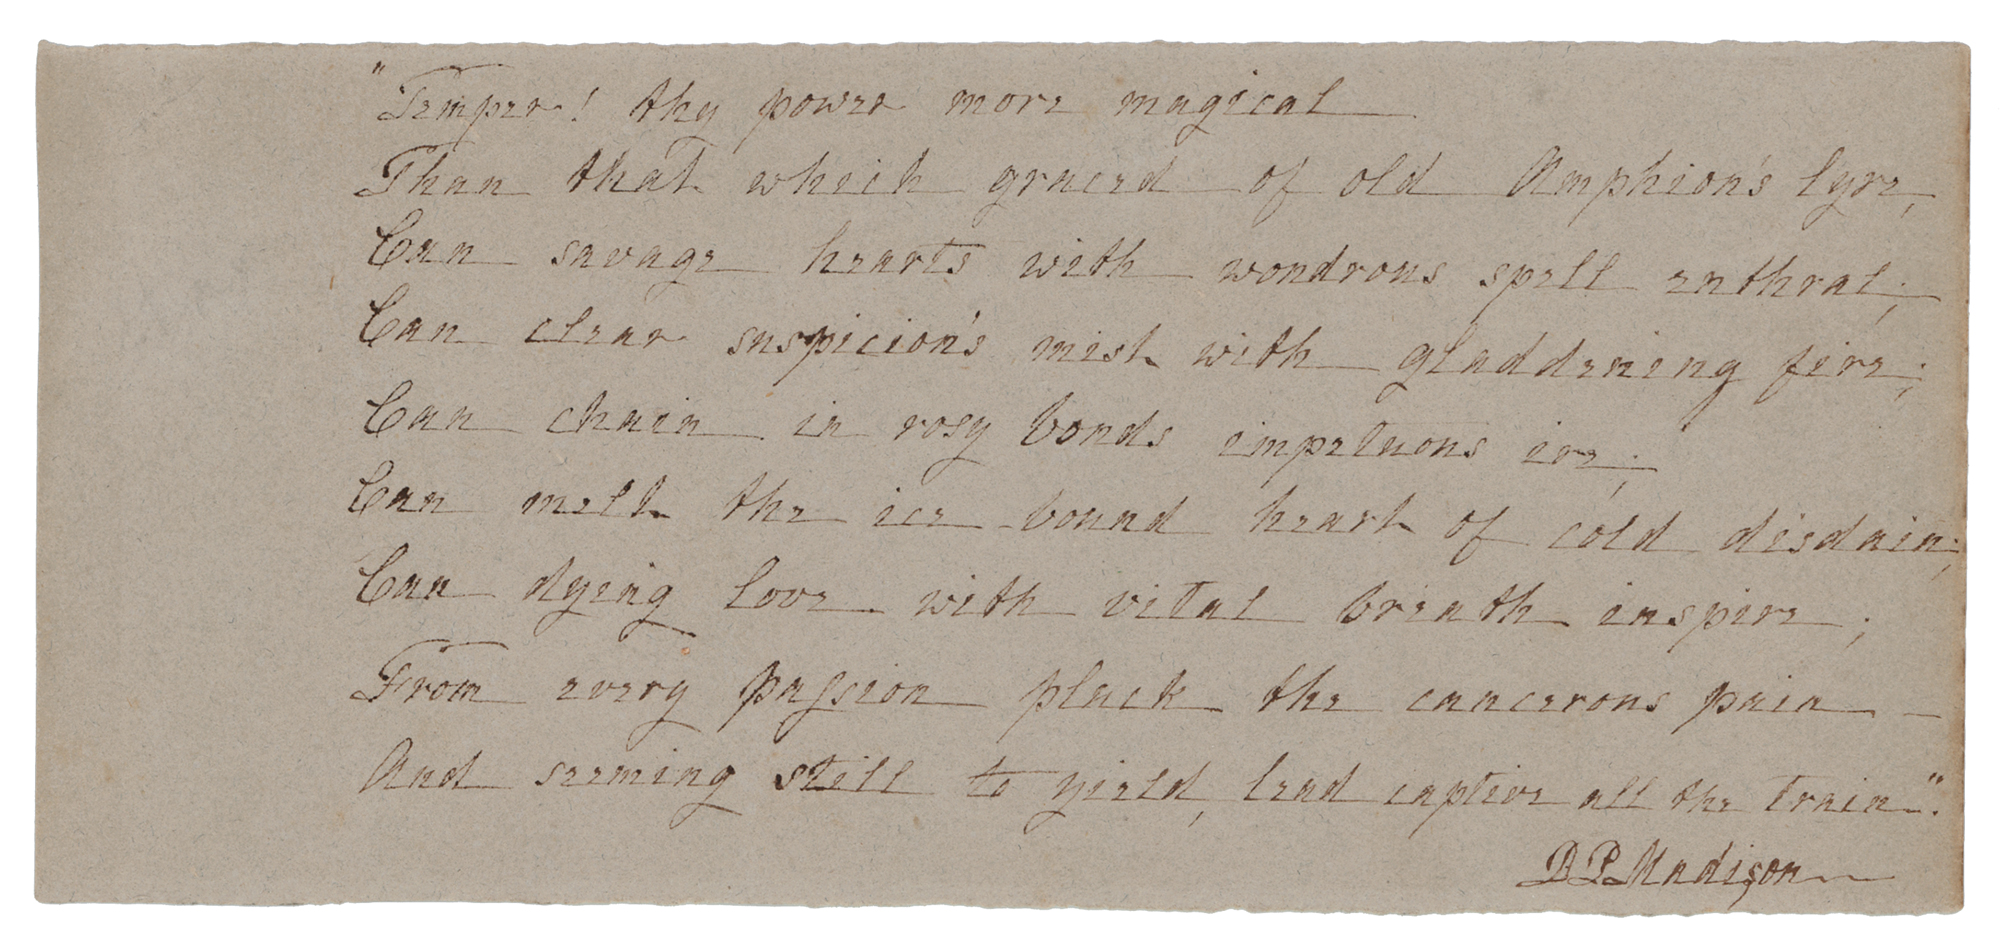 "Temper! thy power more magical
Than that which graced of old Amphion's lyre,
Can savage hearts with wondrous spell enthral;
Can clear suspicion's mist with gladdening fire;
Can chain in rosy bonds impetuous ire;
Can melt the ice bound heart of cold disdain;
Can dying love with vital breath inspire;
From every passion pluck the cancerous pain –
And seeming still to yield, lead captive all the train".
D. P. Madison